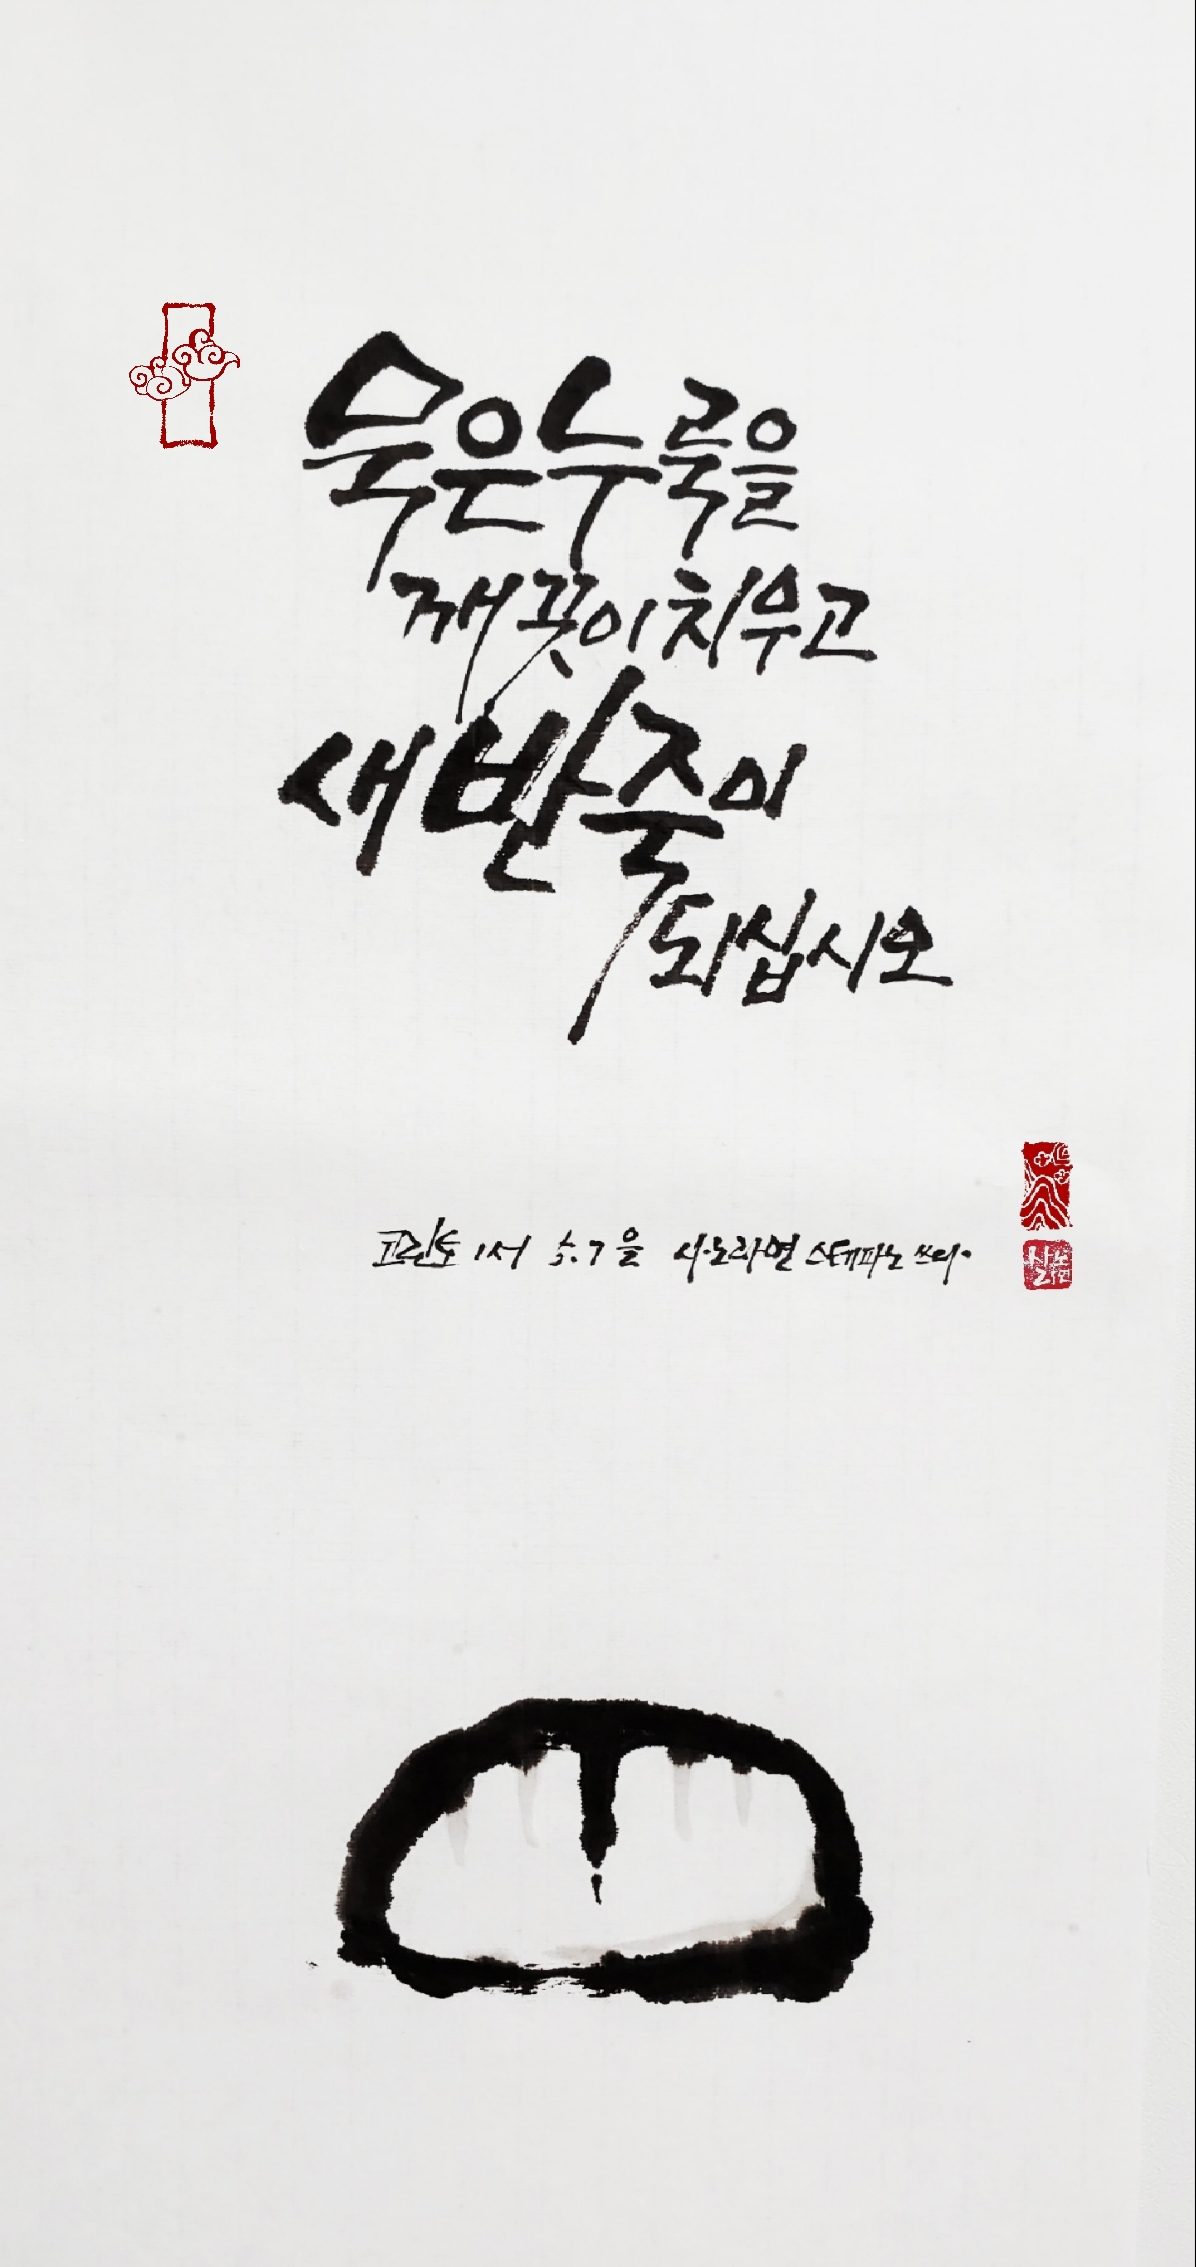 묵은 누룩을
깨끗이 치우고
새 반죽이
되십시오
고린토 1서 5.7을 시.노라연 스테파노 쓰다.